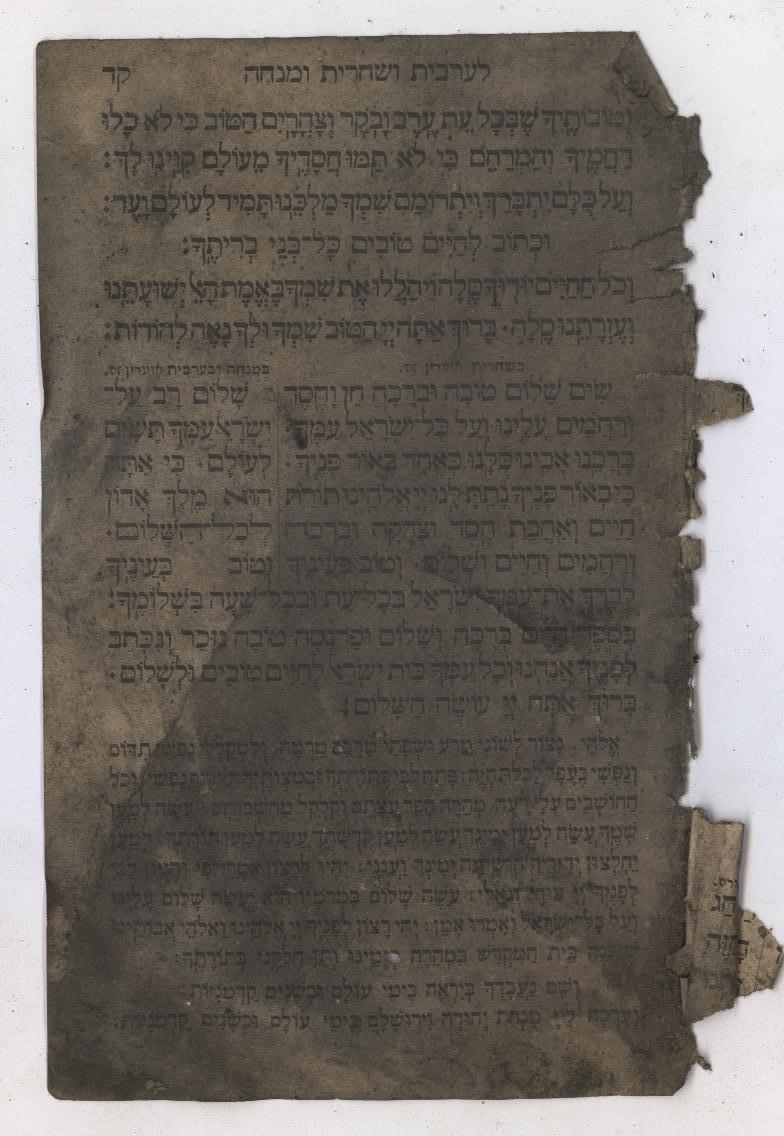 לערבית ושחרית ומנחה קד
וְטוֹבוֹתֶיךָ שֶׁבְּכָל עֵת עֶרֶב וָבֹקֶר וְצָהֳרָיִם הַטּוֹב כִּי לֹא כָלוּ
רַחֲמֶיךָ וְהַמְרַחֵם כִּי לֹא תַמּוּ חֲסָדֶיךָ מֵעוֹלָם קִוִּינוּ לָךְ:
וְעַל כֻּלָּם יִתְבָּרַךְ וְיִתְרוֹמַם שִׁמְךָ מַלְכֵּנוּ תָּמִיד לְעוֹלָם וָעֶד:
וּכְתוֹב לְחַיִּים טוֹבִים כָּל־בְּנֵי בְרִיתֶךָ:
וְכֹל הַחַיִּים יוֹדוּךָ סֶּלָה וִיהַלְלוּ אֶת שִׁמְךָ בֶּאֱמֶת הָאֵל יְשׁוּעָתֵנוּ
וְעֶזְרָתֵנוּ סֶלָה. בָּרוּךְ אַתָּה יְיָ הַטּוֹב שִׁמְךָ וּלְךָ נָאֶה לְהוֹדוֹת:
בשחרית אומרין זה. במנחה ובערבית אומרין זה.
שִׂים שָׁלוֹם טוֹבָה וּבְרָכָה חֵן וָחֶסֶד שָׁלוֹם רָב עַל־
וְרַחֲמִים עָלֵינוּ וְעַל כָּל־יִשְׂרָאֵל עַמֶּךָ. יִשְׂרָאֵל עַמְּךָ תָּשִׂים
בָּרְכֵנוּ אָבִינוּ כֻּלָּנוּ כְּאֶחָד בְּאוֹר פָּנֶיךָ. לְעוֹלָם. כִּי אַתָּה
כִּי בְאוֹר פָּנֶיךָ נָתַתָּ לָּנוּ יְיָ אֱלֹהֵינוּ תּוֹרַת הוּא מֶלֶךְ אָדוֹן
חַיִּים וְאַהֲבַת חֶסֶד וּצְדָקָה וּבְרָכָה לְכָל־הַשָּׁלוֹם.
וְרַחֲמִים וְחַיִּים וְשָׁלוֹם. וְטוֹב בְּעֵינֶיךָ וְטוֹב בְּעֵינֶיךָ
לְבָרֵךְ אֶת־עַמְּךָ יִשְׂרָאֵל בְּכָל־עֵת וּבְכָל־שָׁעָה בִּשְׁלוֹמֶךָ:
בְּסֵפֶר חַיִּים בְּרָכָה וְשָׁלוֹם וּפַרְנָסָה טוֹבָה נִזָּכֵר וְנִכָּתֵב
לְפָנֶיךָ אֲנַחְנוּ וְכָל עַמְּךָ בֵּית יִשְׂרָאֵל לְחַיִּים טוֹבִים וּלְשָׁלוֹם.
בָּרוּךְ אַתָּה יְיָ עוֹשֵׂה הַשָּׁלוֹם:
אֱלֹהַי. נְצוֹר לְשׁוֹנִי מֵרָע וּשְׂפָתַי מִדַּבֵּר מִרְמָה. וְלִמְקַלְלַי נַפְשִׁי תִדּוֹם
וְנַפְשִׁי כֶּעָפָר לַכֹּל תִּהְיֶה. פְּתַח לִבִּי בְּתוֹרָתֶךָ וּבְמִצְוֹתֶיךָ תִּרְדּוֹף נַפְשִׁי. וְכָל
הַחוֹשְׁבִים עָלַי רָעָה. מְהֵרָה הָפֵר עֲצָתָם וְקַלְקֵל מַחְשְׁבוֹתָם. עֲשֵׂה לְמַעַן
שְׁמֶךָ עֲשֵׂה לְמַעַן יְמִינֶךָ עֲשֵׂה לְמַעַן קְדֻשָּׁתֶךָ עֲשֵׂה לְמַעַן תּוֹרָתֶךָ. לְמַעַן
יֵחָלְצוּן יְדִידֶיךָ הוֹשִׁיעָה יְמִינְךָ וַעֲנֵנִי: יִהְיוּ לְרָצוֹן אִמְרֵי־פִי וְהֶגְיוֹן לִבִּי
לְפָנֶיךָ יְיָ צוּרִי וְגוֹאֲלִי: עֹשֶׂה שָׁלוֹם בִּמְרוֹמָיו הוּא יַעֲשֶׂה שָׁלוֹם עָלֵינוּ
וְעַל כָּל־יִשְׂרָאֵל וְאִמְרוּ אָמֵן: יְהִי רָצוֹן לְפָנֶיךָ יְיָ אֱלֹהֵינוּ וֵאלֹהֵי אֲבוֹתֵינוּ
שֶׁיִּבָּנֶה בֵּית הַמִּקְדָּשׁ בִּמְהֵרָה בְיָמֵינוּ וְתֵן חֶלְקֵנוּ בְּתוֹרָתֶךָ:
וְשָׁם נַעֲבָדְךָ בְּיִרְאָה כִּימֵי עוֹלָם וּכְשָׁנִים קַדְמוֹנִיּוֹת:
וְעָרְבָה לַיְיָ מִנְחַת יְהוּדָה וִירוּשָׁלָםִ כִּימֵי עוֹלָם וּכְשָׁנִים קַדְמוֹנִיּוֹת: